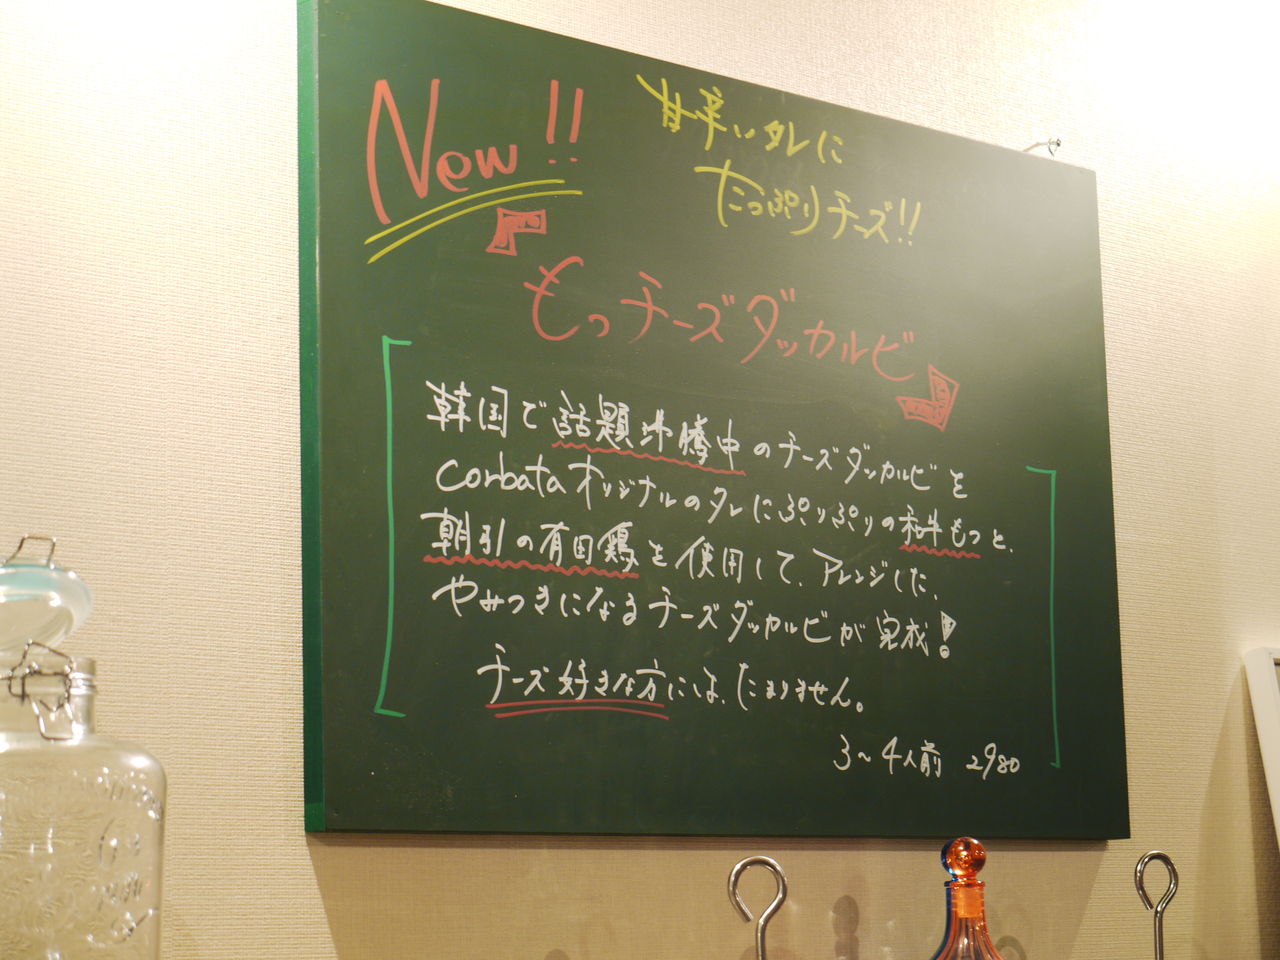 New!!
甘辛いタレに
たっぷりチーズ!!
「もつチーズダッカルビ」
韓国で話題沸騰中のチーズダッカルビを
corbataオリジナルのタレにぷりぷりの和牛もつと、
朝引の有田鶏を使用して、アレンジした、
やみつきになるチーズダッカルビが完成!
チーズ好きな方には、たまりません。
3~4人前 2980